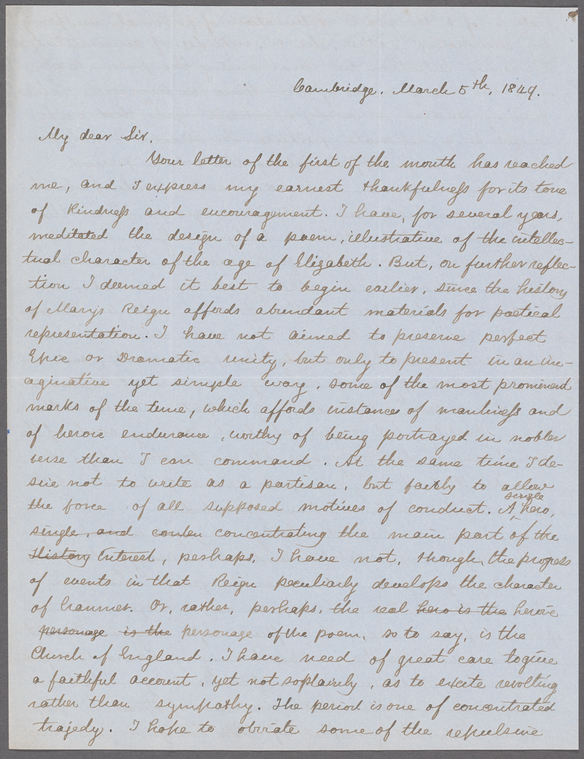 Cambridge. March 5th, 1849.
My dear Sir,
Your letter of the first of the month has reached
me, and I express my earnest thankfulness for its tone
of kindness and encouragement. I have, for several years,
meditated the design of a poem, illustrative of the intellec-
tual character of the age of Elizabeth. But, on further reflec-
tion I deemed it best to begin earlier, since the history
of Mary's Reign affords abundant materials for poetical
representation. I have not aimed to preserve perfect
Epic or Dramatic unity, but only to present in an im-
aginative yet simple way, some of the most prominent
marks of the time, which affords instances of manliness and
of heroic endurance, worthy of being portrayed in nobler
verse than I can command. At the same time I de-
sire not to write as a partisan, but fairly to allow
the force of all supposed motives of conduct. A single hero,
single, and concentrating the main part of the
History Interest, perhaps, I have not, though the progress
of events in that Reign peculiarly develops the character
of Cranmer. Or, rather, perhaps, the real hero is the heroic
personage is the personage of the poem, so to say, is the
Church of England. I have need of great care to give
a faithful account, yet not so plainly, as to excite revolting
rather than sympathy. The period is one of concentrated
trajedy. I hope to obviate some of the repulsive